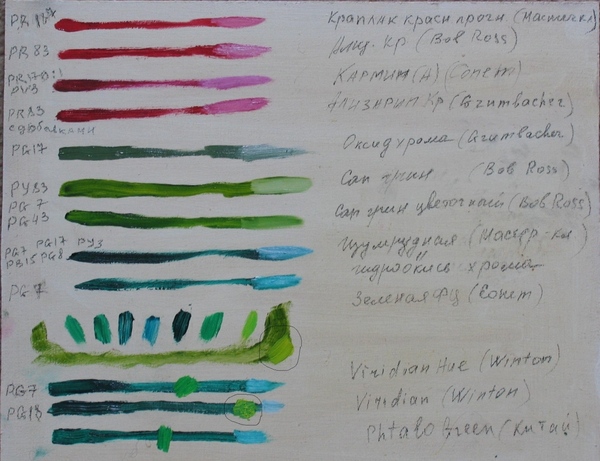 PR
Краплак красн прочн (Мастеркл)
PR 83
Ализ. Кр (Bob Ross)
PR170:1
PV3
Кармин (А) (Сонет)
PR83
с добавками
Ализарин Кр (Grumbacher)
PG17
Оксид хрома (Grumbacher)
PY83
Сап грин (Bob Ross)
PG 7
PG43
Сап грин цветочный (Bob Ross)
PG7 PG17 PY3
PB15 PG8
Изумрудная (Мастер-кл)
гидроокись хрома
PG 7
Зеленая ФЦ (Сонет)
Viridian Hue (Winton)
PG7
Viridian (Winton)
PG18
Phtalo Green (Китай)